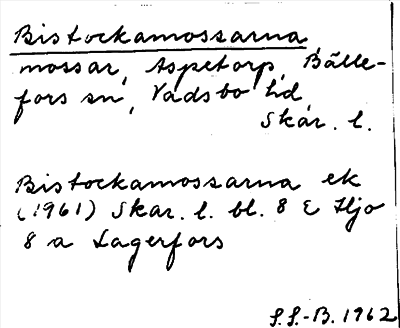 Bistockamossarna
mossar, Aspetorp, Bälle-
fors sn, Vadsbo hd,
Skar. l.
Bistockamossarna ek
(1961) Skar. l. bl. 8 E Hjo
8 a Lagerfors
S.S.-B. 1962